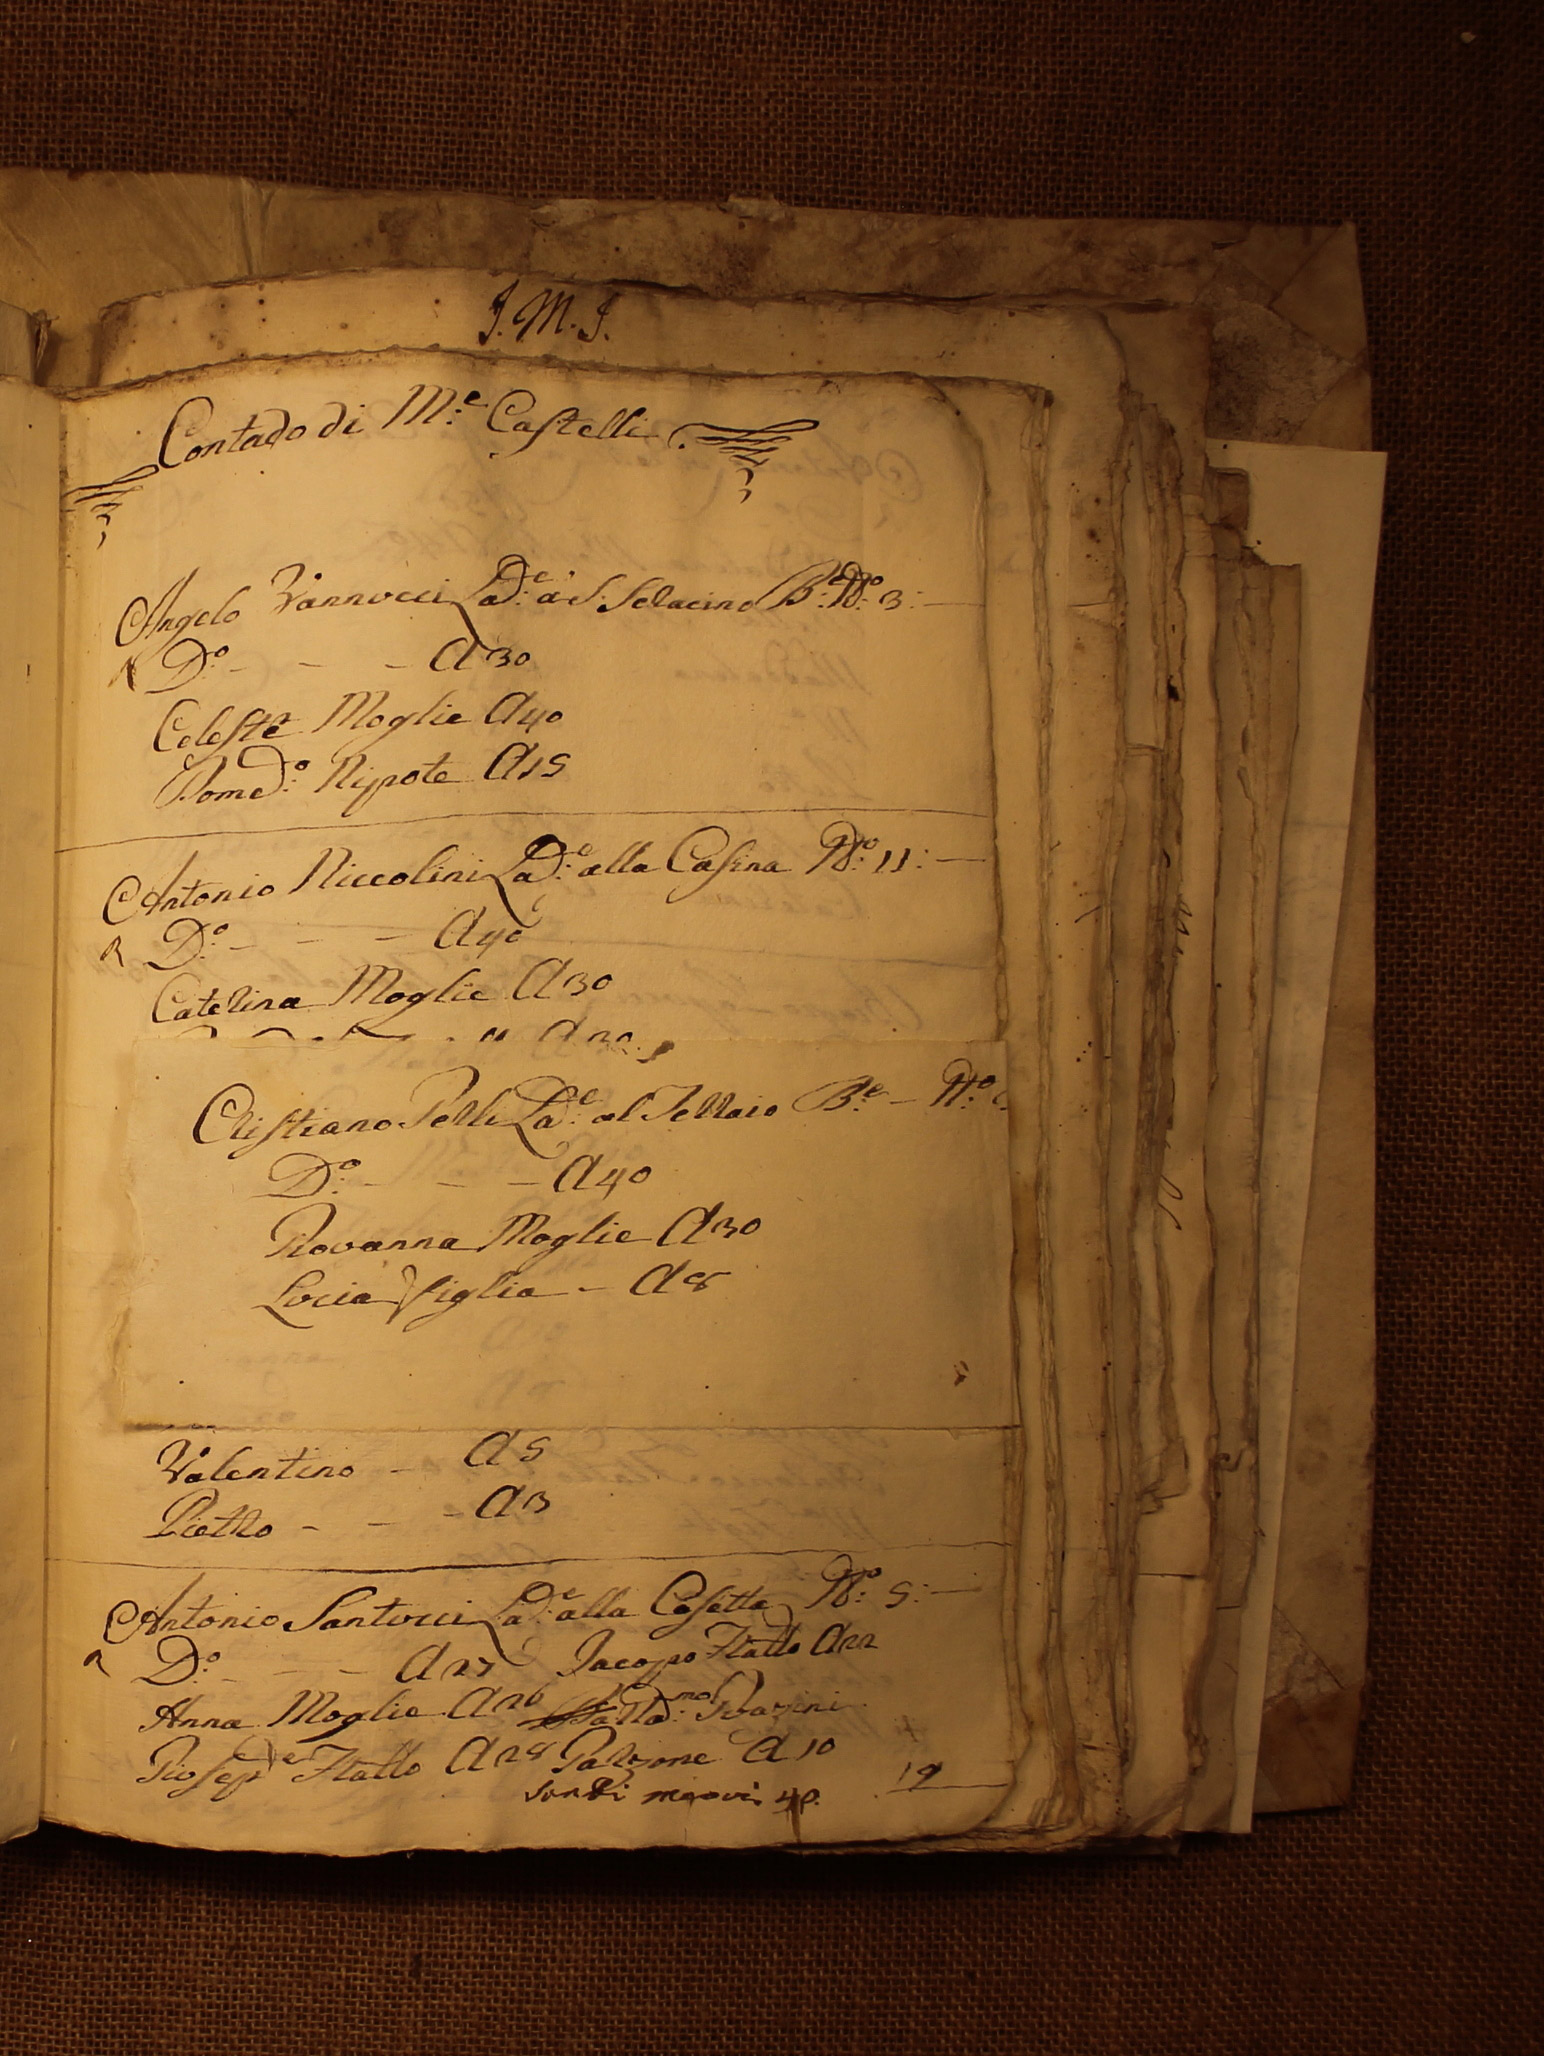 J. M. J.
Contado di M:e Castelli.
Angelo Vannucci Lad:e a S: Selacino B:e N:o 3:
D:o - - - A 30
Celeste Moglie A 40
Dome:o Nipote A 15
Antonio Niccolini Lad:e alla Casina N:o 11:
D:o - - - A 40
Caterina Moglie A 30
Cristiano Pelli Lad:e al Tellaio B:e - N:o
D:o - - - A 40
Giovanna Moglie A 30
Lucia figlia - A 8
Valentino - A 5
Pietro - - - A 3
Antonio Santucci Lad:e alla Casetta N:o 5:
D:o - - - A 27 Jacopo Fratello A 22
Anna Moglie A 26
Giosepe Fratello A 28 Garzone A 10
19